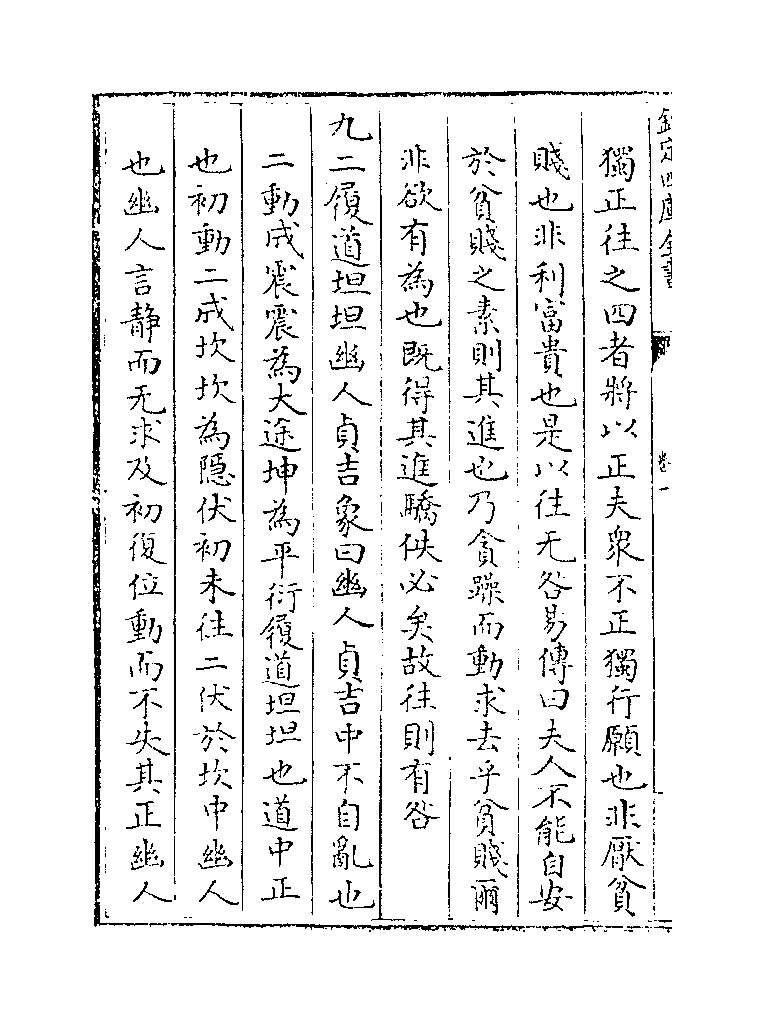 欽定四庫全書
卷一
獨正往之四者將以正夫衆不正獨行願也非厭貧
賤也非利富貴也是以往无咎易傳曰夫人不能自安
於貧賤之素則其進也乃貪躁而動求去乎貧賤爾
非欲有為也既得其進驕佚必矣故往則有咎
九二履道坦坦幽人貞吉象曰幽人貞吉中不自亂也
二動成震震為大途坤為平衍履道坦坦也道中正
也初動二成坎坎為隱伏初未往二伏於坎中幽人
也幽人言静而无求及初復位動而不失其正幽人